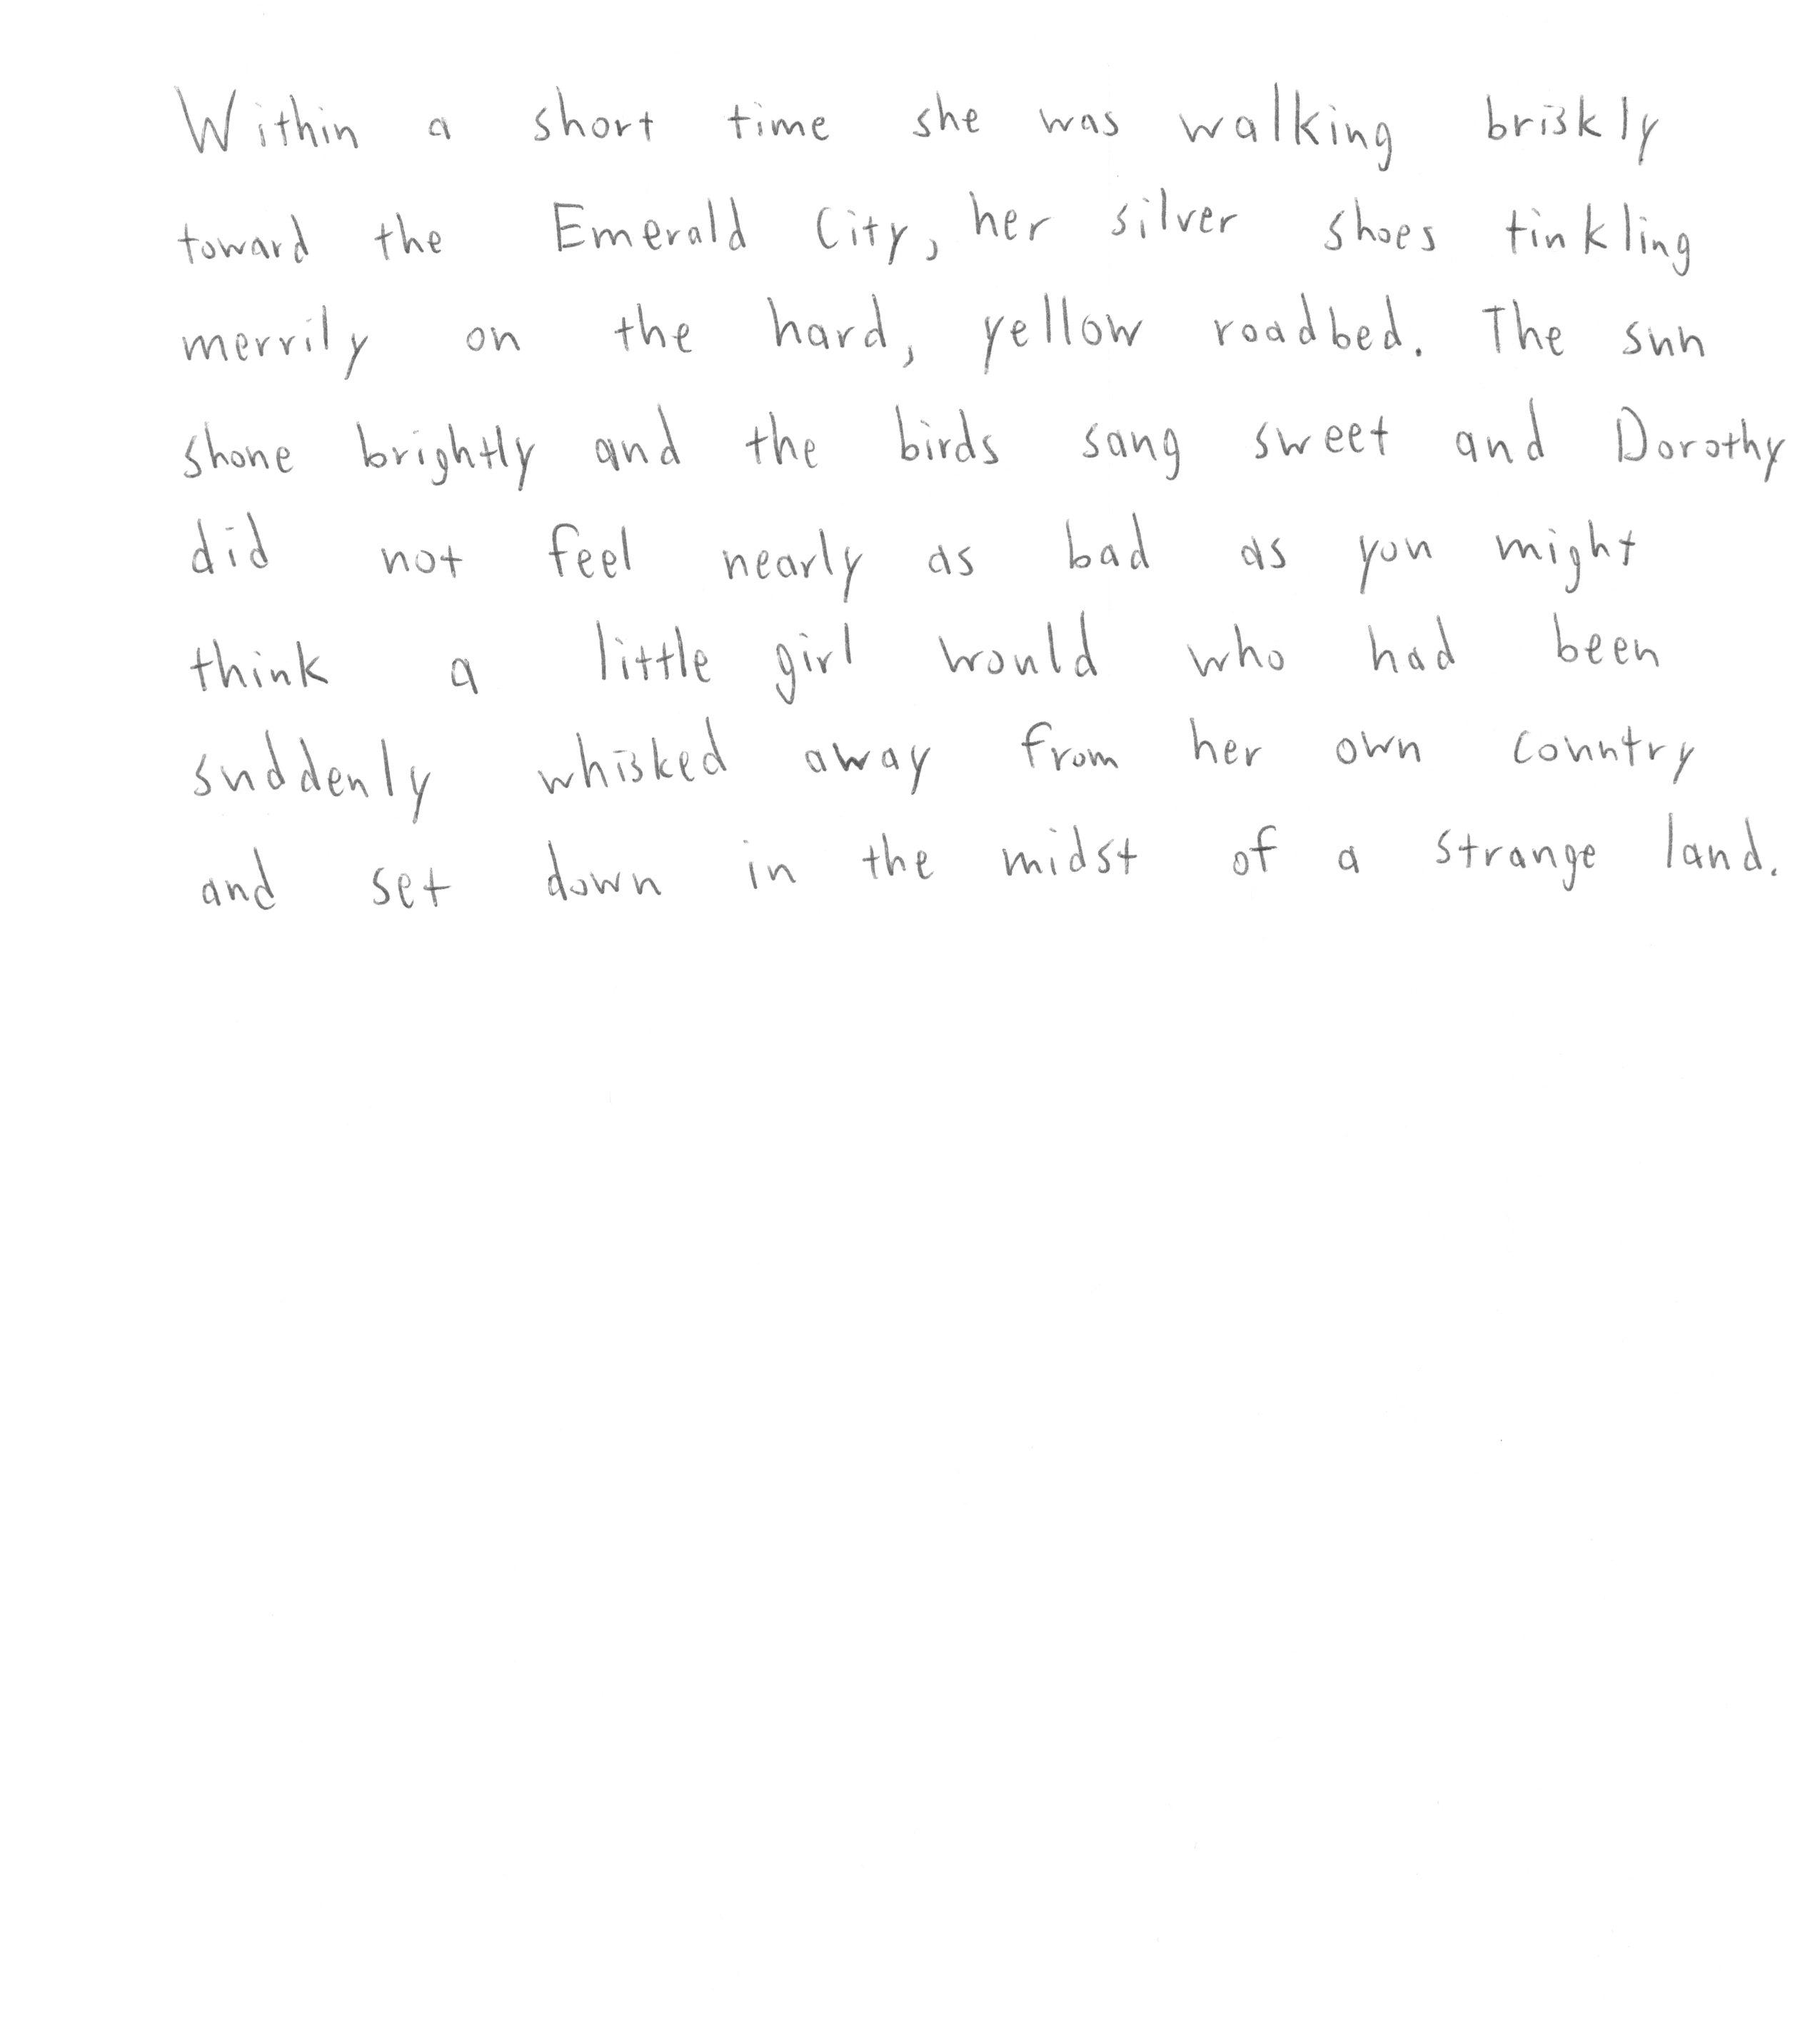 Within a short time she was walking briskly
toward the Emerald City, her silver shoes tinkling
merrily on the hard, yellow roadbed. The sun
shone brightly and the birds sang sweet and Dorothy
did not feel nearly as bad as you might
think a little girl would who had been
suddenly whisked away from her own country
and set down in the midst of a strange land.